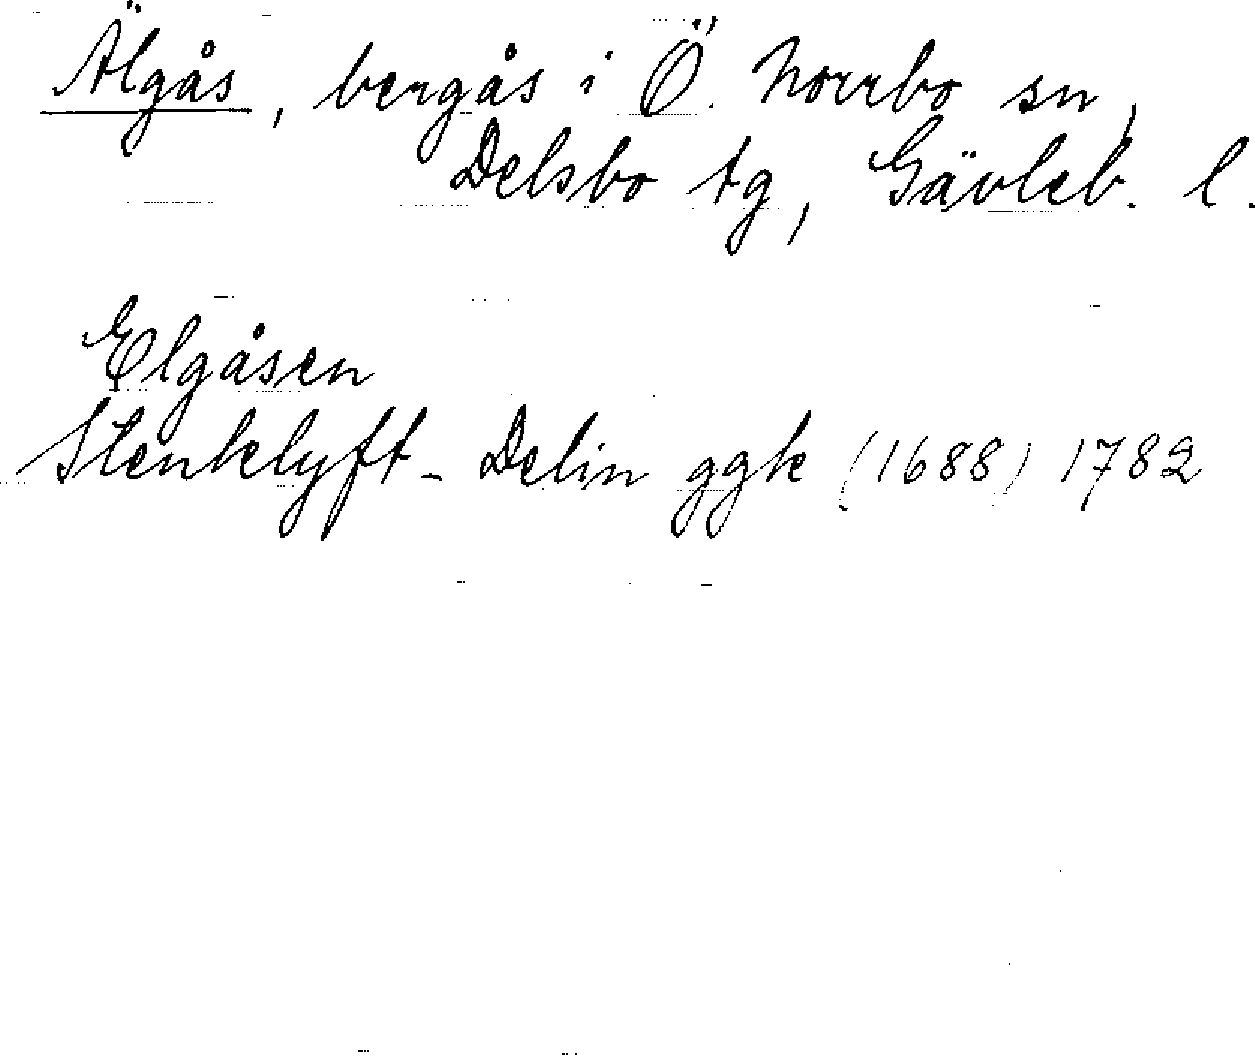 Älgås, bergås i Ö. Norrbo sn,
Delsbo tg, Gävleb. l.
Elgåsen
Stenklyft- Delin ggk (1688) 1782